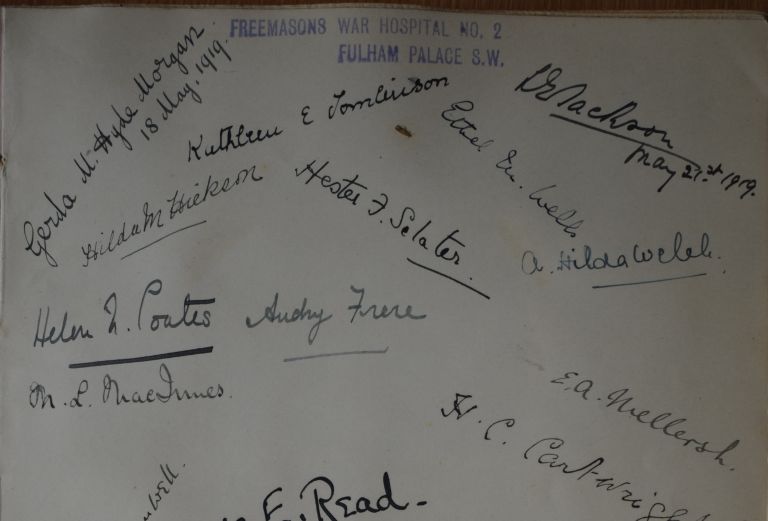 FREEMASONS WAR HOSPITAL NO. 2
FULHAM PALACE S.W.
Gerda M. Hyde Morgan
18 May. 1919.
Kathleen E Tomlinson
Jackson
May 21st 1919.
Ethel M. Wells
Hilda M Hickson
Hester F. Sclater.
A. Hilda Welch.
Helen N. Coates
Audry Frere
M. L. MacInnes.
E.A. Mellersh.
H. C. Cartwright
E. Read.
well.